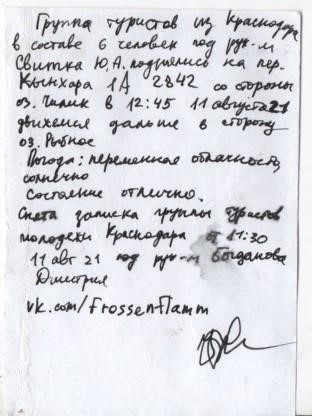 Группа туристов из Краснодара
в составе 6 человек под рук-м
Свитка Ю.А. поднялись на пер.
Кынхара 1А 2842 со стороны
оз. Чилик в 12:45 11 августа 21
движемся дальше в сторону
оз. Рыбное
Погода: переменная облачность,
солнечно
Состояние отлично.
Снята записка группы туристов
молодежи Краснодара от 11:30
11 авг 21 под рук-м Богданова
Дмитрия
vk.com/frossenflamm